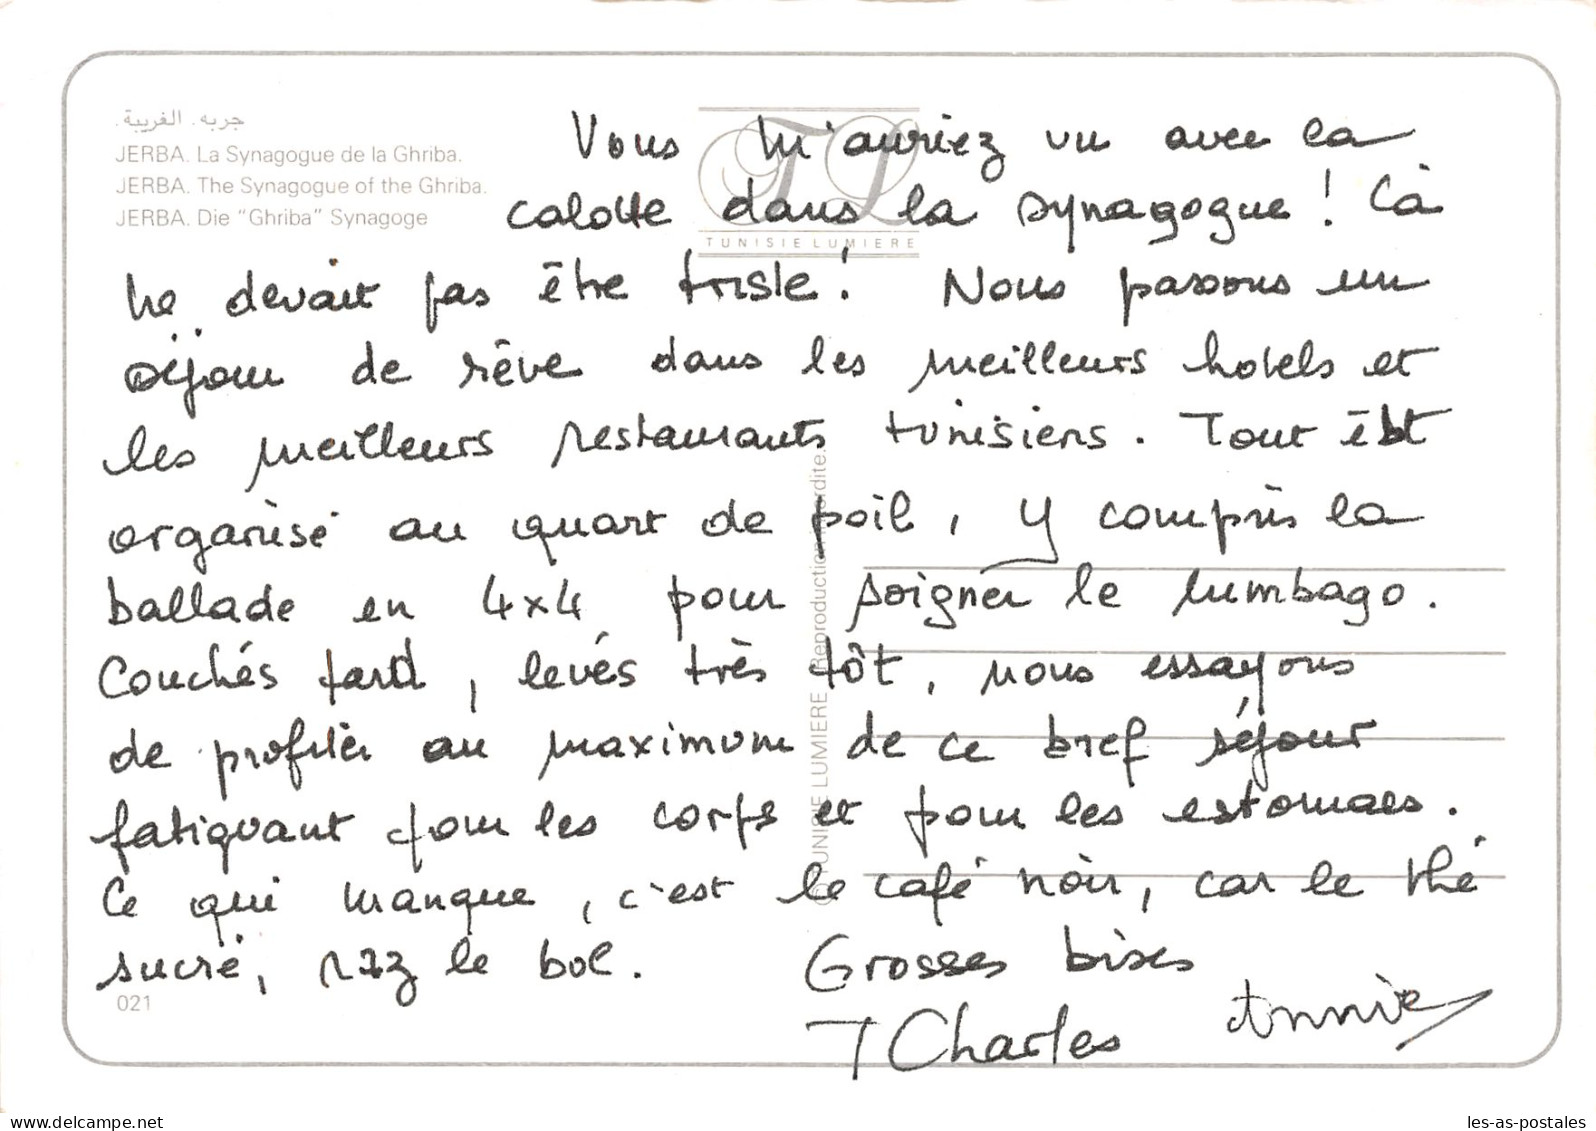 جربه. الغريبة.
JERBA. La Synagogue de la Ghriba.
JERBA. The Synagogue of the Ghriba.
JERBA. Die "Ghriba" Synagoge
TL
TUNISIE LUMIERE
Vous m'auriez vu avec la
calotte dans la synagogue ! Cà
ne devait pas être triste ! Nous passons un
séjour de rêve dans les meilleurs hotels et
les meilleurs restaurants tunisiens. Tout est
organisé au quart de poil, y compris la
ballade en 4x4 pour soigner le lumbago.
Couchés tard, levés très tôt, nous essayons
de profiter au maximum de ce bref séjour
fatiquant pour les corps et pour les estomacs.
Ce qui manque, c'est le café noir, car le thé
sucré, raz le bol. Grosses bises
J Charles Annie
021
© TUNISIE LUMIERE Reproduction interdite.
delcampe.net
les-as-postales